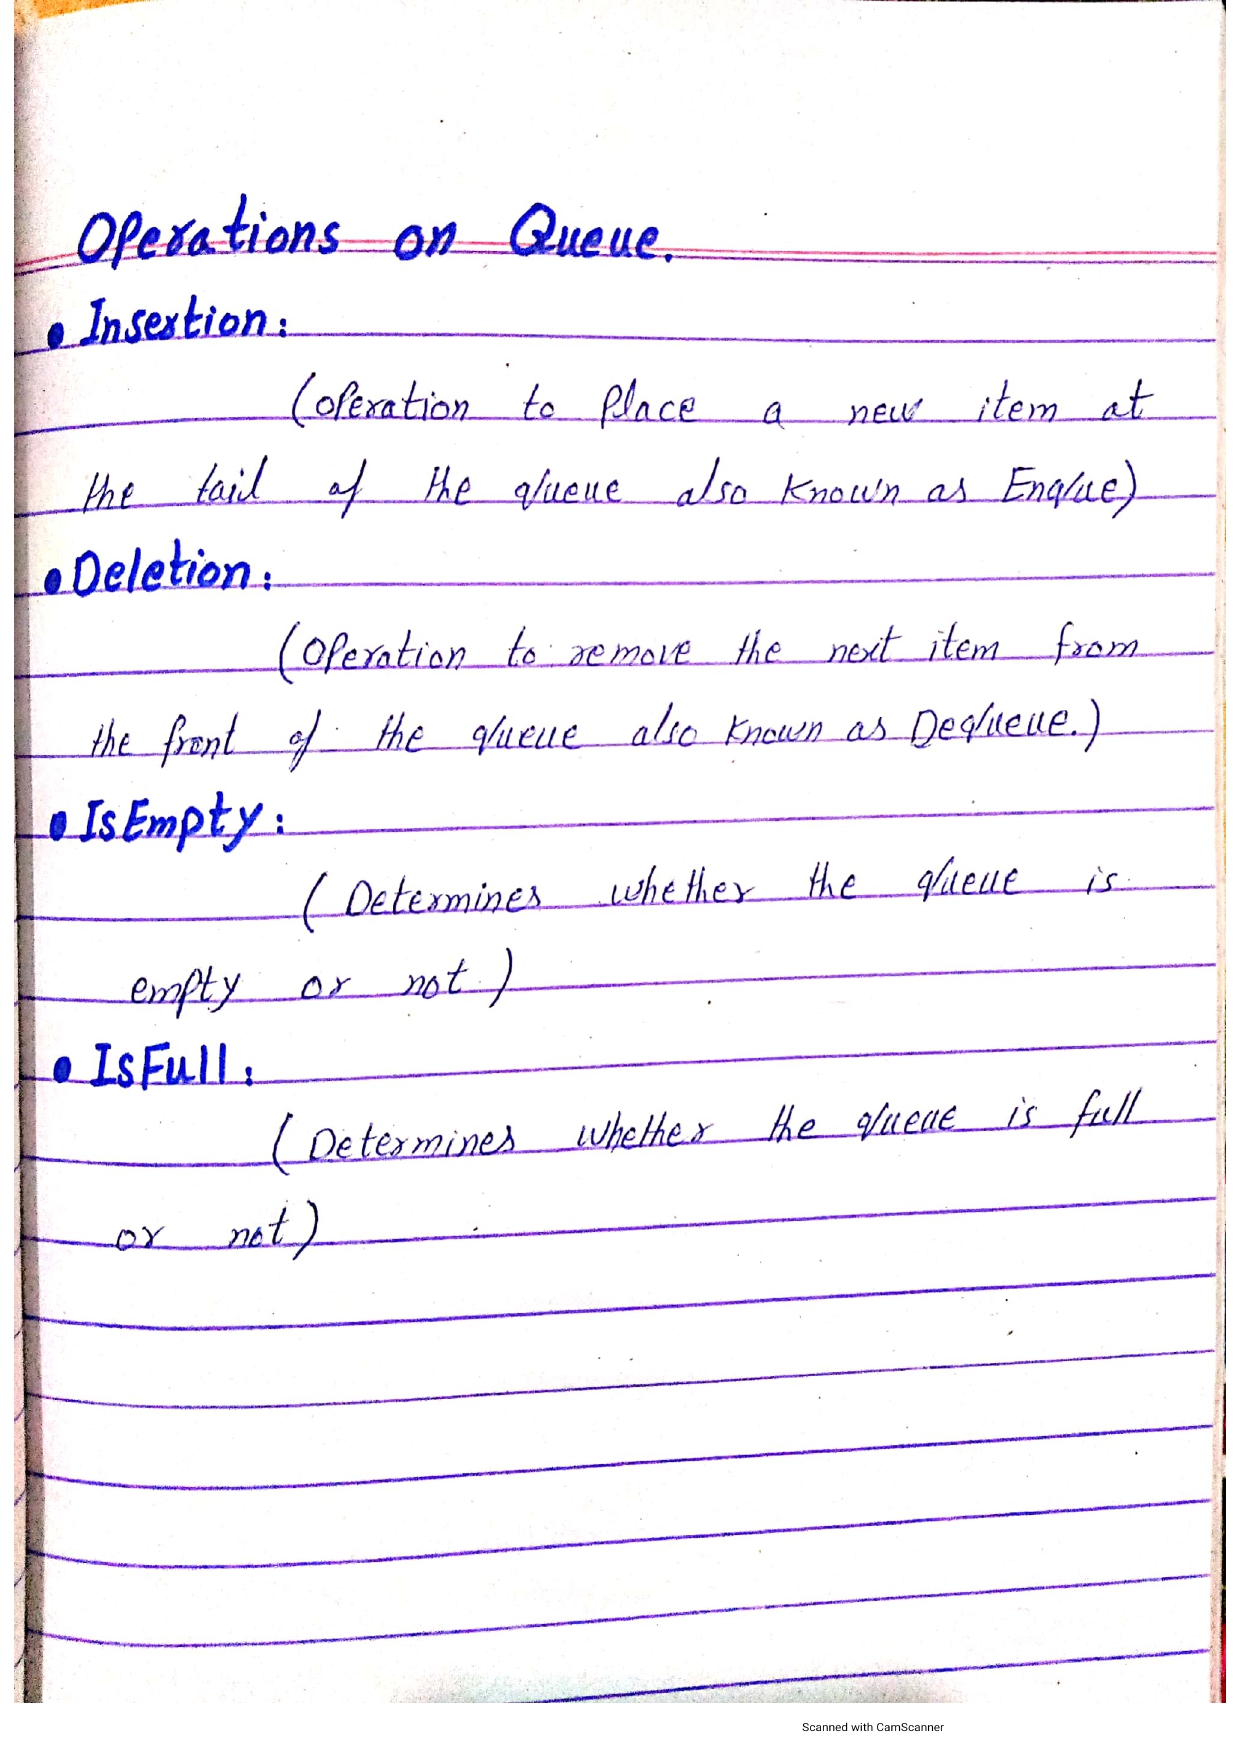 Operations on Queue.
• Insertion:
(operation to place a new item at
the tail of the queue also known as Enque)
• Deletion:
(Operation to remove the next item from
the front of the queue also known as Dequeue.)
• IsEmpty:
( Determines whether the queue is
empty or not )
• IsFull:
( Determines whether the queue is full
or not )
Scanned with CamScanner